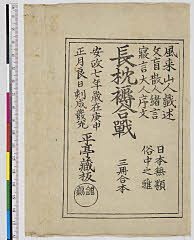 風来山人戯述
欠旨散人緒言
寝言大人序文
日本無類
俗中之雅
長枕褥合戦
三冊合本
安政七年歳在庚申
正月良日刻成発兌
平亭蔵板